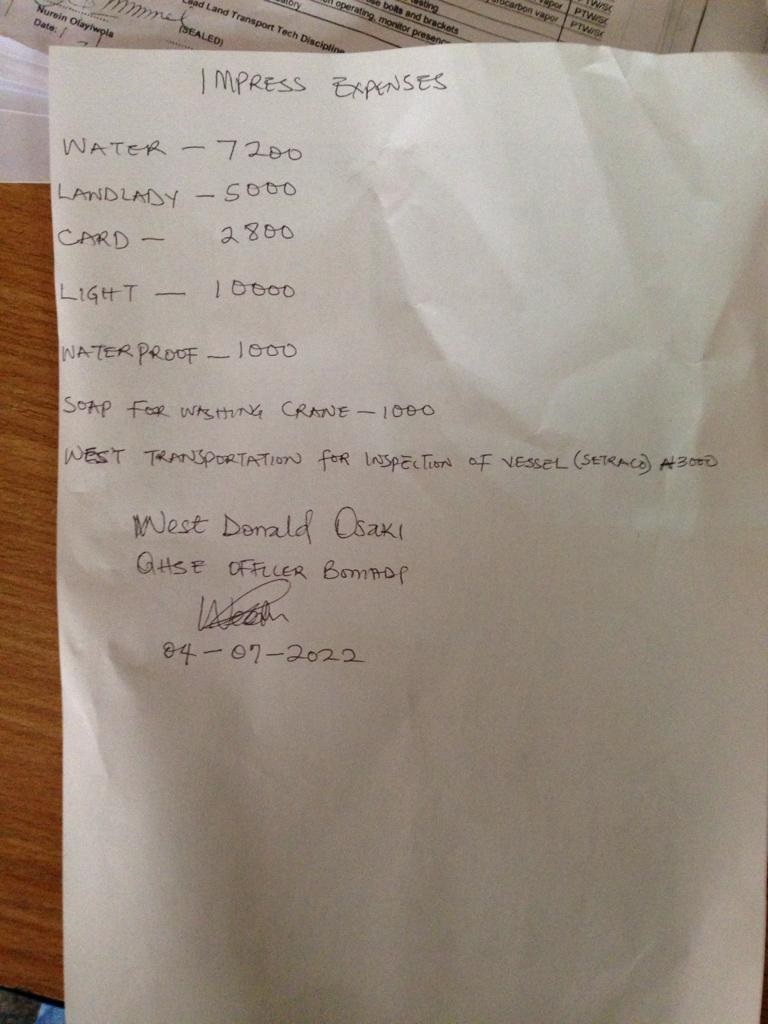 Nurein Olayiwola
Date:
(SEALED)
Lead Land Transport Tech Discipline
operating, monitor presence
bolts and brackets
vapor
PTW/SC
IMPRESS EXPENSES
WATER – 7200
LANDLADY – 5000
CARD – 2800
LIGHT – 10000
WATERPROOF – 1000
SOAP FOR WASHING CRANE – 1000
WEST TRANSPORTATION FOR INSPECTION OF VESSEL (SETRACO) ₦3000
West Donald Osaki
QHSE OFFICER BOMADP
04-07-2022